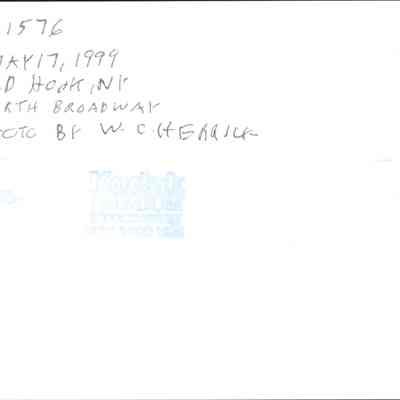 1576
MAY 17, 1999
D HOOK, NY
RTH BROADWAY
OTO BY W. C. HERRICK